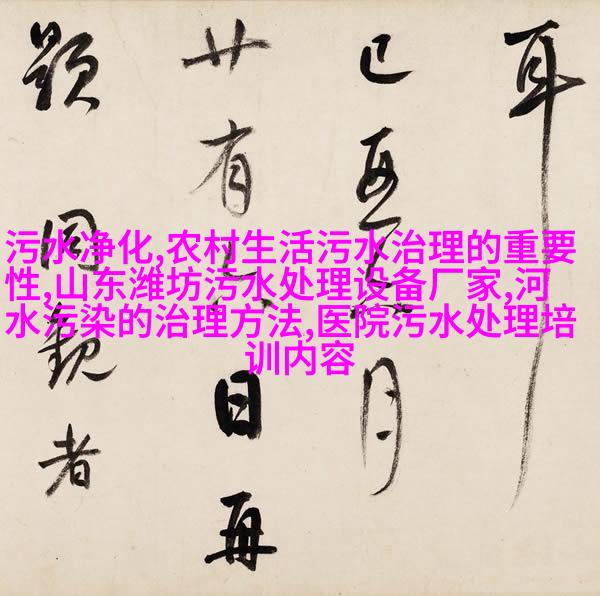 污水净化,农村生活污水治理的重要
性,山东潍坊污水处理设备厂家,河
水污染的治理方法,医院污水处理培
训内容
耳
月
廿有六日再
題同觀者